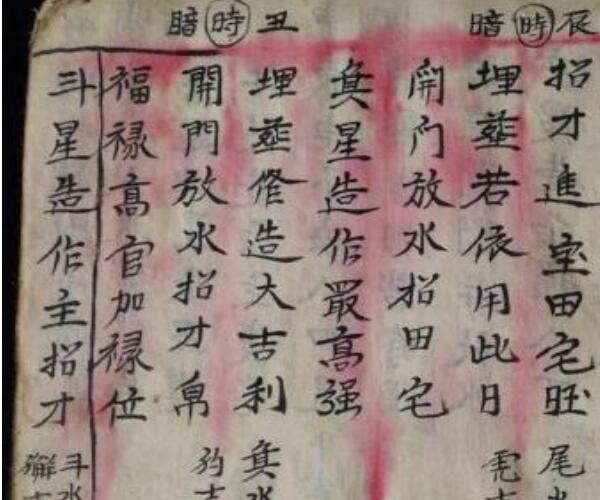 辰時暗
招才進宝田宅旺
埋塟若依用此日
開门放水招田宅
箕星造作最高强
丑時暗
埋塟修造大吉利
開門放水招才帛
福禄高官加禄位
斗星造作主招才
尾
箕水
斗水